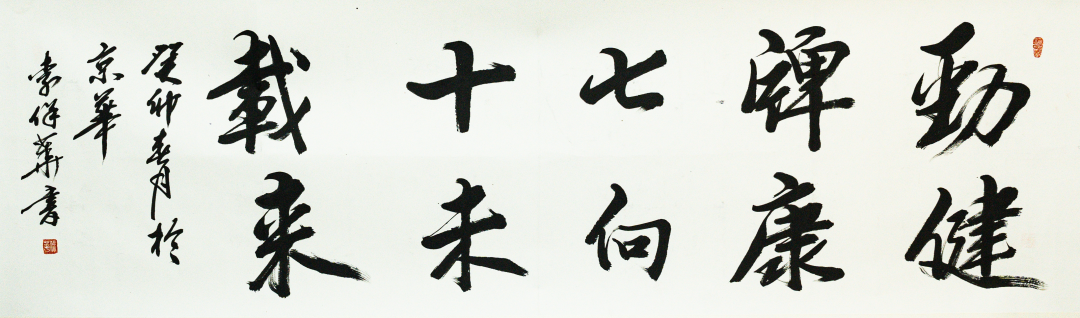 勁牌七十載
健康向未来
癸卯春月於
京華
華書